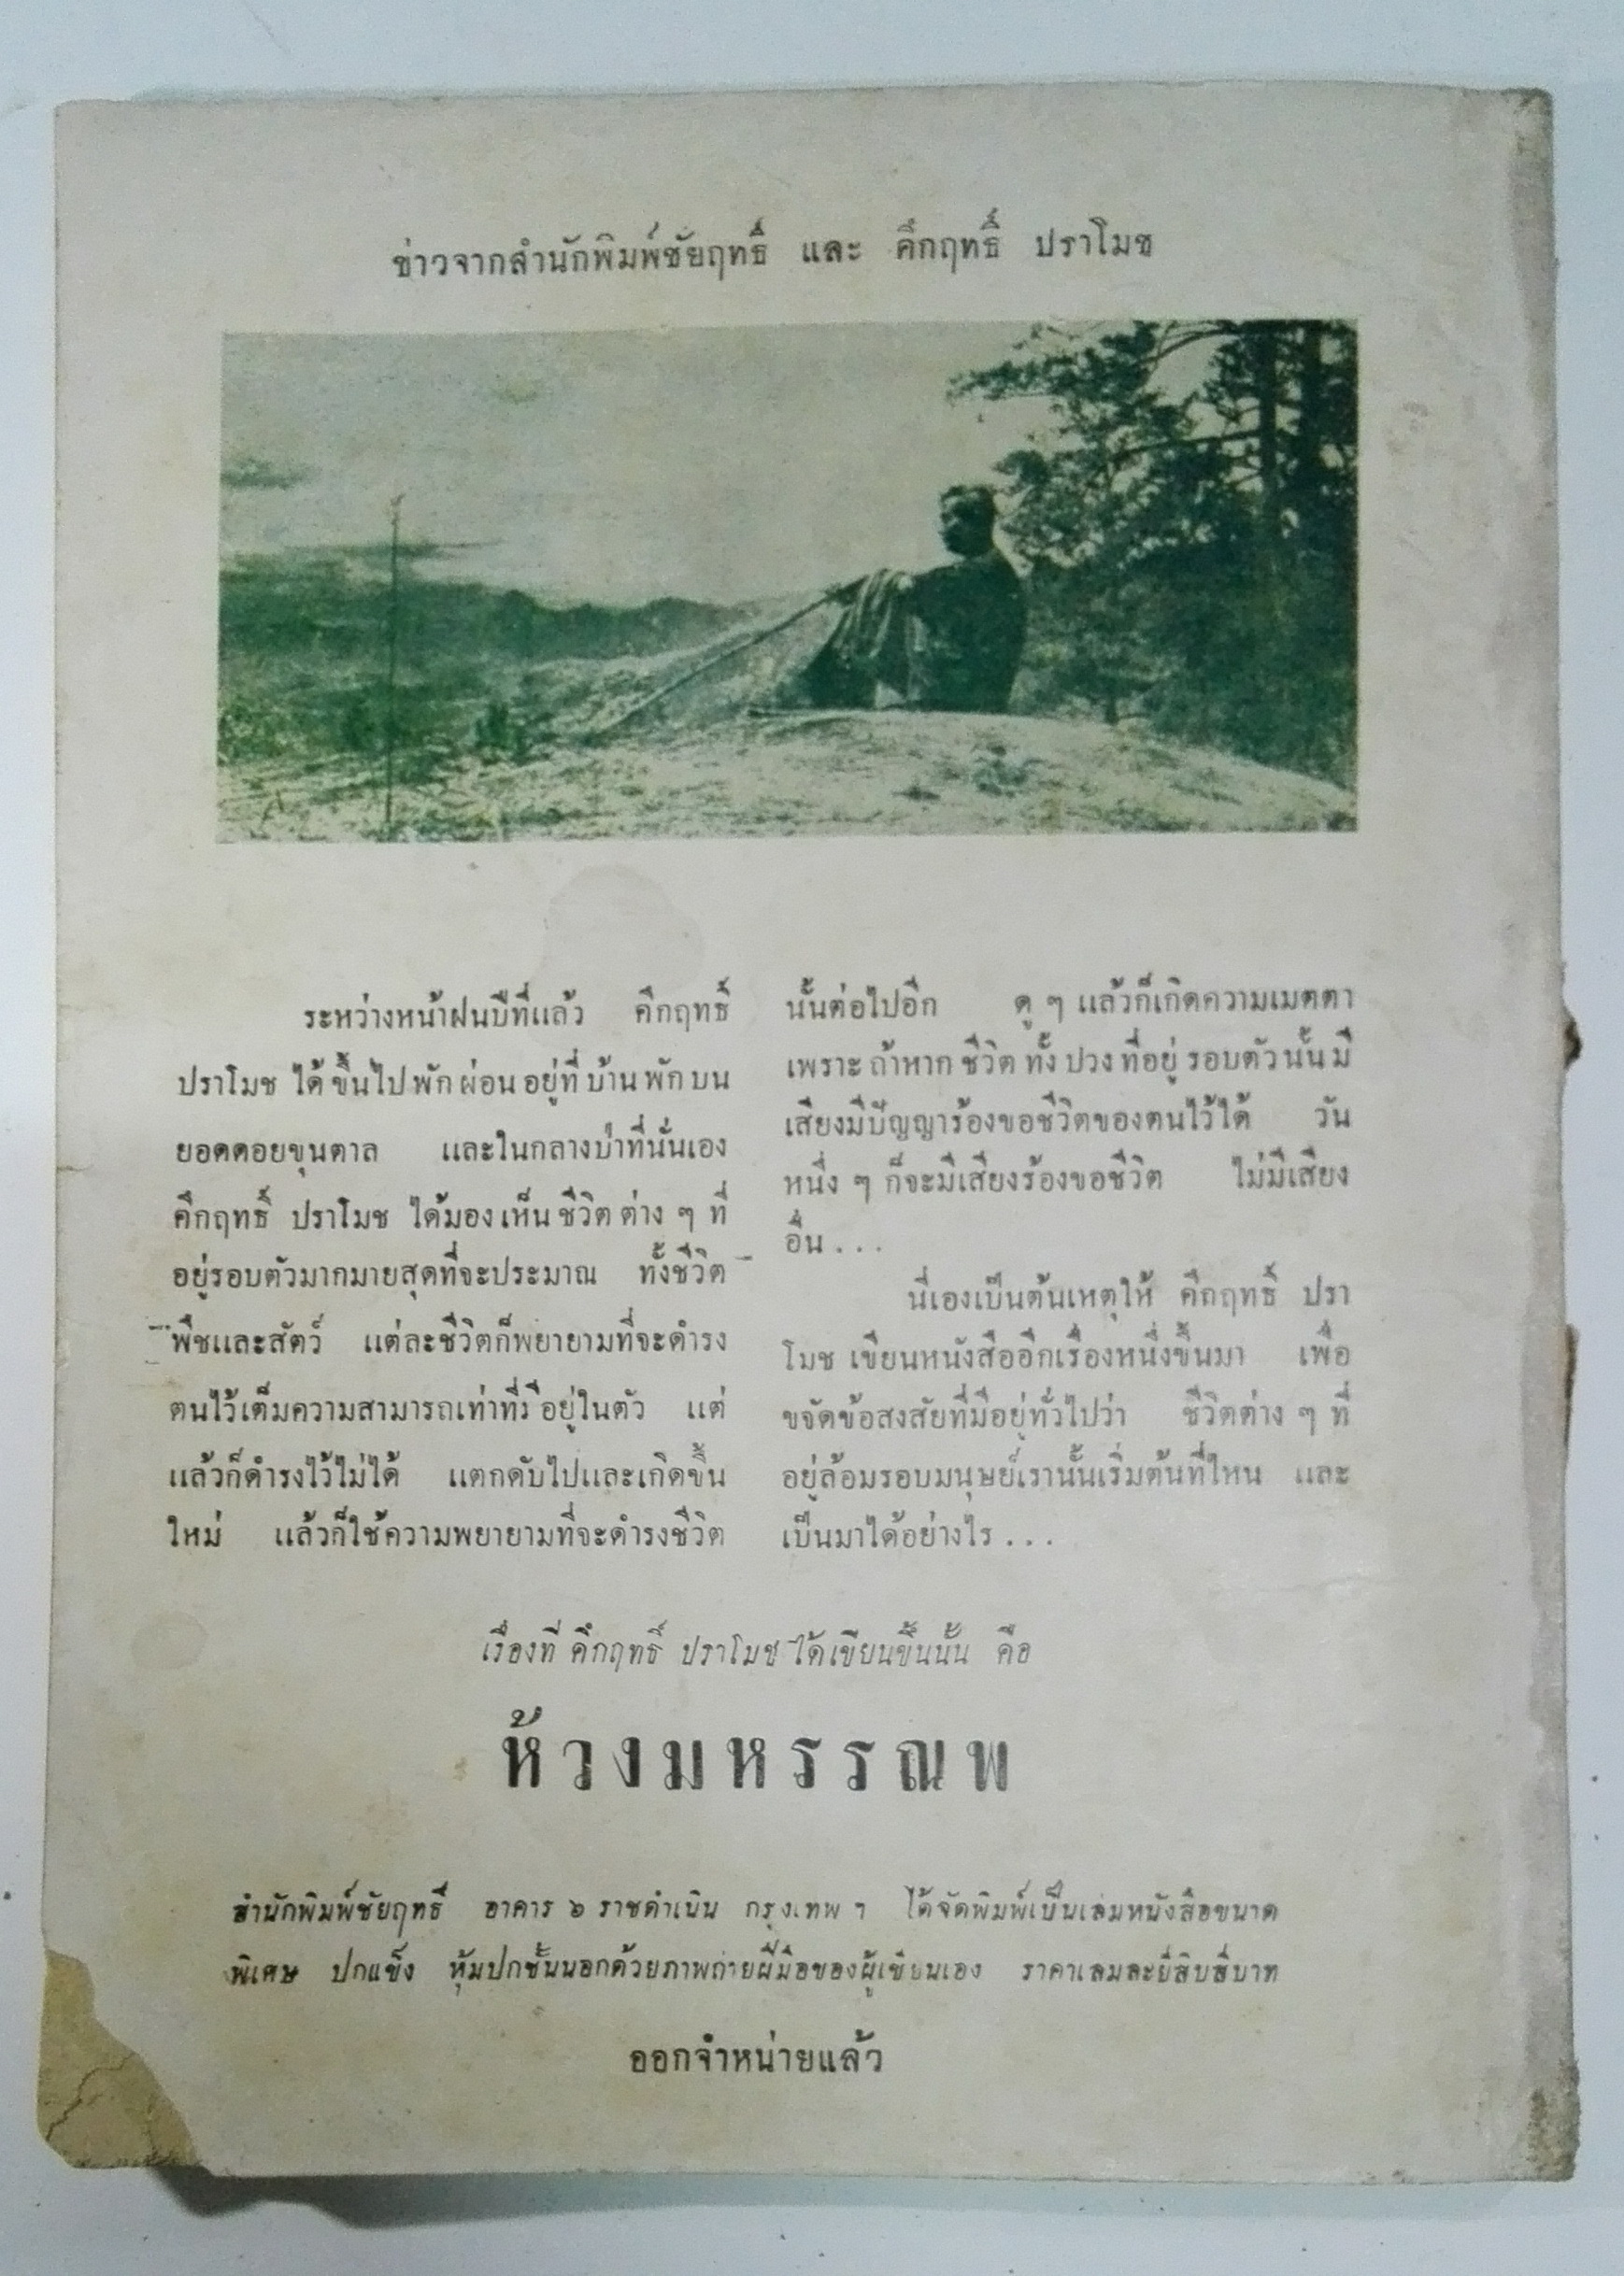 ข่าวจากสำนักพิมพ์ชัยฤทธิ์ และ คึกฤทธิ์ ปราโมช
ระหว่างหน้าฝนปีที่แล้ว คึกฤทธิ์
ปราโมช ได้ขึ้นไปพักผ่อนอยู่ที่บ้านพักบน
ยอดดอยขุนตาล และในกลางป่าที่นั่นเอง
คึกฤทธิ์ ปราโมช ได้มองเห็นชีวิตต่าง ๆ ที่
อยู่รอบตัวมากมายสุดที่จะประมาณ ทั้งชีวิต
พืชและสัตว์ แต่ละชีวิตก็พยายามที่จะดำรง
ตนไว้เต็มความสามารถเท่าที่มีอยู่ในตัว แต่
แล้วก็ดำรงไว้ไม่ได้ แตกดับไปและเกิดขึ้น
ใหม่ แล้วก็ใช้ความพยายามที่จะดำรงชีวิต
นั้นต่อไปอีก ดู ๆ แล้วก็เกิดความเมตตา
เพราะถ้าหากชีวิตทั้งปวงที่อยู่รอบตัวนั้นมี
เสียงมีปัญญาร้องขอชีวิตของตนไว้ได้ วัน
หนึ่ง ๆ ก็จะมีเสียงร้องขอชีวิต ไม่มีเสียง
อื่น . . .
นี่เองเป็นต้นเหตุให้ คึกฤทธิ์ ปรา
โมช เขียนหนังสืออีกเรื่องหนึ่งขึ้นมา เพื่อ
ขจัดข้อสงสัยที่มีอยู่ทั่วไปว่า ชีวิตต่าง ๆ ที่
อยู่ล้อมรอบมนุษย์เรานั้นเริ่มต้นที่ไหน และ
เป็นมาได้อย่างไร . . .
เรื่องที่ คึกฤทธิ์ ปราโมช ได้เขียนขึ้นนั้น คือ
ห้วงมหรรณพ
สำนักพิมพ์ชัยฤทธิ์ อาคาร ๖ ราชดำเนิน กรุงเทพ ฯ ได้จัดพิมพ์เป็นเล่มหนังสือขนาด
พิเศษ ปกแข็ง หุ้มปกชั้นนอกด้วยภาพถ่ายฝีมือของผู้เขียนเอง ราคาเล่มละยี่สิบสี่บาท
ออกจำหน่ายแล้ว